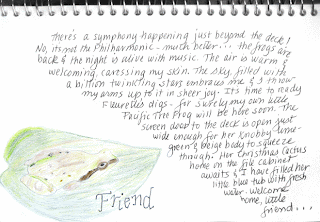 There's a symphony happening just beyond the deck!
No, its not the Philharmonic - much better... the frogs are
back & the night is alive with music. The air is warm &
welcoming, caressing my skin. The sky, filled with
a billion twinkling stars embraces me & I throw
my arms up to it in sheer joy. Its time to ready
digs - for surely my own little
Pacific Tree Frog will be here soon. The
screen door to the deck is open just
wide enough for her knobby lime-
green & beige body to squeeze
through. Her Christmas Cactus
home on the file cabinet
awaits & I have filled her
little blue tub with fresh
water. Welcome
home, little
friend...
Friend